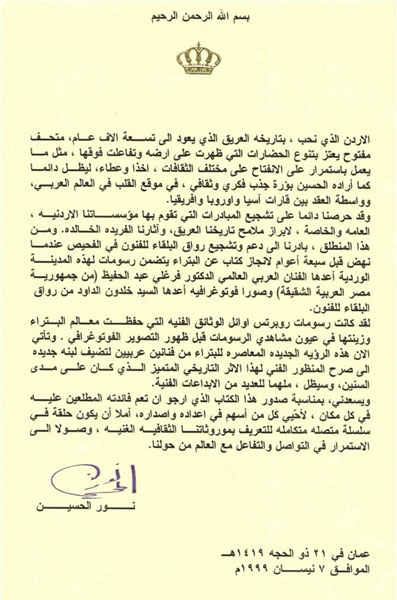 بسم الله الرحمن الرحيم
الاردن الذي نحب ، بتاريخه العريق الذي يعود الى تسعة الاف عام، متحف
مفتوح يعتز بتنوع الحضارات التي ظهرت على ارضه وتفاعلت فوقها ، مثل ما
يعمل باستمرار على الانفتاح على مختلف الثقافات ، اخذا وعطاء، ليظل دائما
كما أراده الحسين بؤرة جذب فكري وثقافي ، في موقع القلب في العالم العربي،
وواسطة العقد بين قارات آسيا واوروبا وافريقيا.
وقد حرصنا دائما على تشجيع المبادرات التي تقوم بها مؤسساتنا الاردنيه ،
العامه والخاصة ، لابراز ملامح تاريخنا العريق ، وآثارنا الفريده الخالده. ومن
هذا المنطلق ، بادرنا الى دعم وتشجيع رواق البلقاء للفنون في الفحيص عندما
نهض قبل سبعة أعوام لانجاز كتاب عن البتراء يتضمن رسومات لهذه المدينة
الوردية أعدها الفنان العربي العالمي الدكتور فرغلي عبد الحفيظ (من جمهورية
مصر العربية الشقيقة) وصورا فوتوغرافيه أعدها السيد خلدون الداود من رواق
البلقاء للفنون.
لقد كانت رسومات روبرتس اوائل الوثائق الفنيه التي حفظت معالم البتراء
وزينتها في عيون مشاهدي الرسومات قبل ظهور التصوير الفوتوغرافي . وتأتي
الان هذه الرؤيه الجديده المعاصره للبتراء من فنانين عربيين لتضيف لبنه جديده
الى صرح المنظور الفني لهذا الاثر التاريخي المتميز الذي كان على مدى
السنين، وسيظل ، ملهما للعديد من الابداعات الفنية.
ويسعدني، بمناسبة صدور هذا الكتاب الذي ارجو ان تعم فائدته المطلعين عليه
في كل مكان ، لأحيّي كل من أسهم في اعداده واصداره، آملا أن يكون حلقة في
سلسلة متصله متكامله للتعريف بموروثاتنا الثقافيه الغنيه ، وصولا الى
الاستمرار في التواصل والتفاعل مع العالم من حولنا.
نور الحسين
عمان في ٢١ ذو الحجه ١٤١٩هـ
الموافق ٧ نيسان ١٩٩٩م